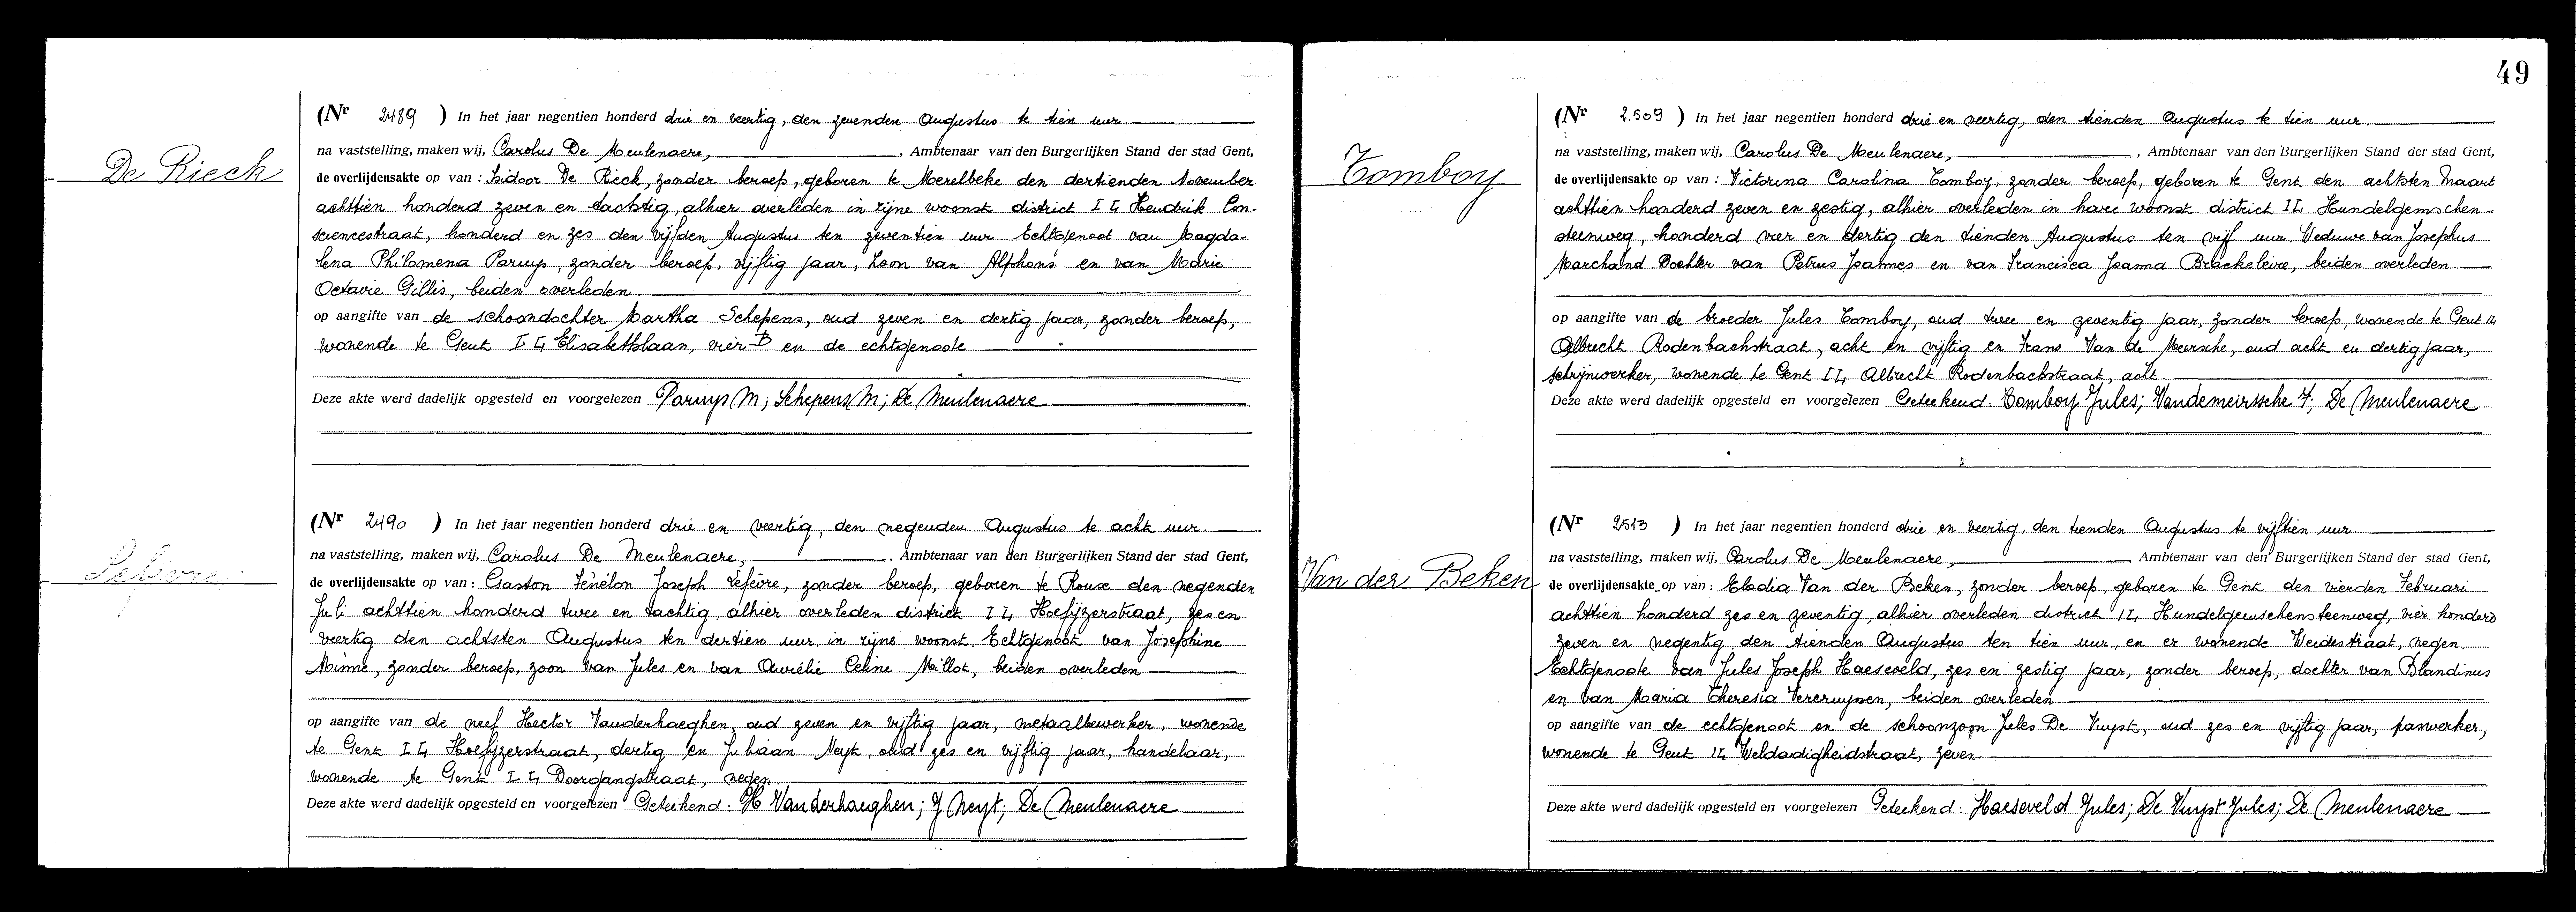 De Rieck
(Nr 2489 ) In het jaar negentien honderd drie en veertig, den zevenden Augustus te tien uur
na vaststelling, maken wij, Carolus De Meulenaere, , Ambtenaar van den Burgerlijken Stand der stad Gent,
de overlijdensakte op van : Isidoor De Rieck, zonder beroep, geboren te Merelbeke den dertienden November
achttien honderd zeven en tachtig, alhier overleden in zijne woonst district I 4 Hendrik Con-
sciencestraat, honderd en zes den vijfden Augustus ten zeventien uur. Echtgenoot van Magda-
lena Philomena Paruys, zonder beroep, vijftig jaar, Zoon van Alphons en van Marie
Octavie Gillis, beiden overleden
op aangifte van de schoondochter Martha Schepens, oud zeven en dertig jaar, zonder beroep,
wonende te Gent I 4 Elisabethlaan, vier B en de echtgenoote
Deze akte werd dadelijk opgesteld en voorgelezen Paruys M; Schepens M; De Meulenaere
Lefèvre
(Nr 2490 ) In het jaar negentien honderd drie en veertig, den negenden Augustus te acht uur.
na vaststelling, maken wij, Carolus De Meulenaere, , Ambtenaar van den Burgerlijken Stand der stad Gent,
de overlijdensakte op van : Gaston Fénélon Joseph Lefèvre, zonder beroep, geboren te Roux den negenden
Juli achttien honderd twee en tachtig, alhier overleden district I 4, Hoefijzerstraat, zes en
veertig den achtsten Augustus ten dertien uur in zijne woonst. Echtgenoot van Josephine
Minne, zonder beroep, zoon van Jules en van Aurélie Celine Millot, beiden overleden
op aangifte van de neef Hector Vanderhaeghen, oud zeven en vijftig jaar, metaalbewerker, wonende
te Gent I 4 Hoefijzerstraat, dertig en Juliaan Neyt, oud zes en vijftig jaar, handelaar,
wonende te Gent I 4 Doorgangstraat, negen.
Deze akte werd dadelijk opgesteld en voorgelezen Geteekend: H Vanderhaeghen; J Neyt; De Meulenaere
49
Tomboy
(Nr 2.509 ) In het jaar negentien honderd drie en veertig, den tienden Augustus te tien uur
na vaststelling, maken wij, Carolus De Meulenaere, , Ambtenaar van den Burgerlijken Stand der stad Gent,
de overlijdensakte op van : Victorina Carolina Tomboy, zonder beroep, geboren te Gent den achtsten Maart
achttien honderd zeven en zestig, alhier overleden in hare woonst district I4 Hundelgemschen-
steenweg, honderd vier en dertig den tienden Augustus ten vijf uur. Weduwe van Josephus
Marchand Dochter van Petrus Joannes en van Francisca Joanna Brackeleire, beiden overleden
op aangifte van de broeder Jules Tomboy, oud twee en zeventig jaar, zonder beroep, wonende te Gent I4
Albrecht Rodenbachstraat, acht en vijftig en Frans Van de Meersche, oud acht en dertig jaar,
schrijnwerker, wonende te Gent I4, Albrecht Rodenbachstraat, acht
Deze akte werd dadelijk opgesteld en voorgelezen Geteekend: Tomboy Jules; Vandemeirssche F; De Meulenaere
Van der Beken
(Nr 2513 ) In het jaar negentien honderd drie en veertig, den tienden Augustus te vijftien uur
na vaststelling, maken wij, Carolus De Meulenaere, Ambtenaar van den Burgerlijken Stand der stad Gent,
de overlijdensakte op van : Elodia Van der Beken, zonder beroep, geboren te Gent den vierden Februari
achttien honderd zes en zeventig, alhier overleden district I4, Hundelgemschensteenweg, vier honderd
zeven en negentig den tienden Augustus ten tien uur, en er wonende Weidestraat, negen.
Echtgenoote van Jules Joseph Haeseveld, zes en zestig jaar, zonder beroep, dochter van Blandinus
en van Maria Theresia Vercruyssen, beiden overleden.
op aangifte van de echtgenoot en de schoonzoon Jules De Vuyst, oud zes en vijftig jaar, paswerker,
wonende te Gent I4 Weldadigheidstraat, zeven.
Deze akte werd dadelijk opgesteld en voorgelezen Geteekend: Haeseveld Jules; De Vuyst Jules; De Meulenaere